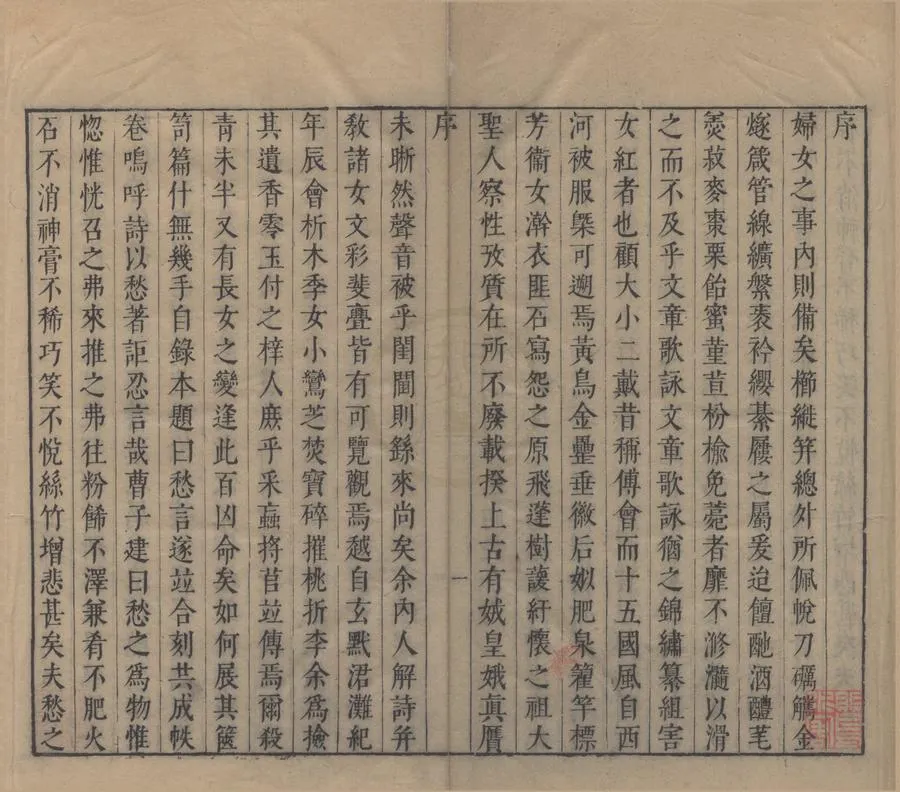 序
婦女之事內則備矣櫛縰笄總外所佩帨刀礪觿金
燧箴管線纊鞶袠衿纓綦屨之屬爰迨饘酏酒醴芼
羮菽麥棗栗飴蜜菫荁枌榆免薧者靡不滫瀡以滑
之而不及乎文章歌詠文章歌詠猶之錦繡纂組害
女紅者也顧大小二戴昔稱傅會而十五國風自西
河被服槩可遡焉黃鳥金罍垂徽后姒肥泉籊竿標
芳衞女澣衣匪石寫怨之原飛蓬樹諼紆懷之祖大
聖人察性攷質在所不廢載揆上古有娀皇娥眞贋
序
一
未晣然聲音被乎閨閫則繇來尚矣余內人解詩幷
敎諸女文彩斐亹皆有可覽觀焉越自玄默涒灘紀
年辰會析木季女小鸞芝焚寶碎摧桃折李余爲撿
其遺香零玉付之梓人庶乎采蝱將苢竝傳焉爾殺
靑未半又有長女之變逢此百凶命矣如何展其篋
笥篇什無幾手自錄本題曰愁言遂竝合刻共成帙
卷嗚呼詩以愁著詎忍言哉曹子建曰愁之爲物惟
惚惟恍召之弗來推之弗往粉餙不澤兼肴不肥火
石不消神膏不稀巧笑不悅絲竹增悲甚矣夫愁之